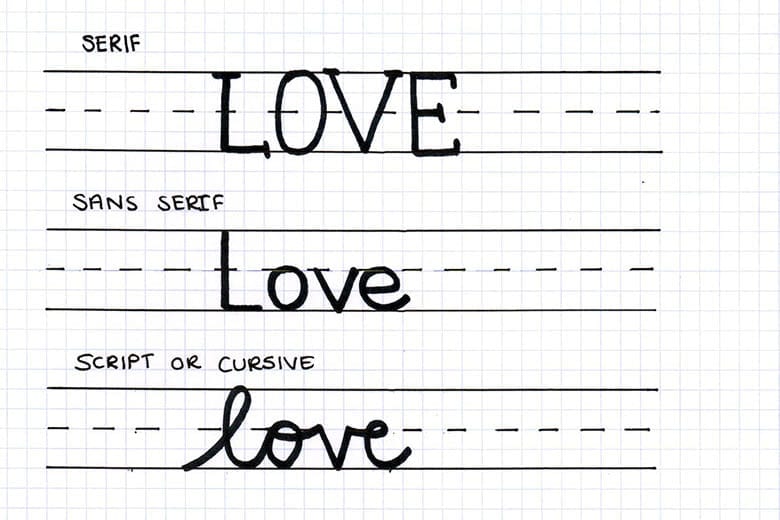 SERIF
LOVE
SANS SERIF
Love
SCRIPT OR CURSIVE
love